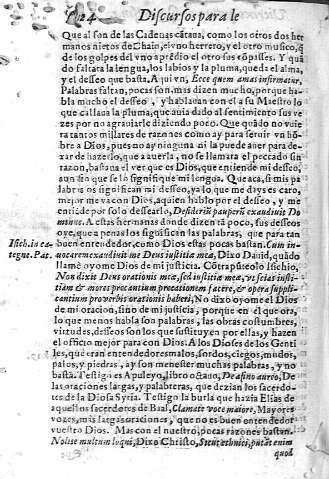 124 Discursos para le
Que al son de las Cadenas cãtaua, como los otros dos her
manos nietos de Chain, el vno herrero, y el otro musico, q̃
de los golpes del vno aprẽdio el otro sus cõpasses. Y quã
do faltara la lengua, los labios y la pluma, queda el alma,
y el desseo que basta. A qui vn, Ecce quem amas infirmatur.
Palabras faltan, pocas son, mas dizen mucho, porque ha-
bla mucho el desseo, y hablauan con el a su Maestro lo
que callaua la pluma, que auia dado al sentimiento sus ve
zes por no agrauiarle diziendo poco. Que quãdo no vuie
ra tantos millares de razones como ay para seruir vn hõ-
bre a Dios, pues no ay ninguna ni la puede auer para de-
xar de hazerlo, que a auerla, no se llamara el peccado sin
razon, bastaua el ver que es Dios, que entiende mi desseo,
aun sin que se lo signifique mi lengua. Que aca, si mis pa
labras os significan mi desseo, ya lo que me days es caro,
mejor me va con Dios, aquien hablo por el desseo, y me
entiẽde por solo dessearlo, Desideriũ pauperũ exaudiuit Do
minus. A estas donde dizen tã poco, sus desseos
oye, que a penas los significan las palabras, que para tan
Isich. in ca- buen entendedor, como Dios estas pocas bastan. Cum in-
tegne. Pat. uocarem exaudiuit me Deus iustitiæ meæ, Dixo Dauid, quãdo
llame oyome el Dios de mi justicia. Cõtrapuseolo Isichio,
Non dixit Deus orationis meæ, sed iustitiæ meæ, vt scias iusti-
tiam & mores precantium precationem facere, & opera suppli-
cantium pro verbis orationis haberi, No dixo oyome el Dios
de mi oracion, sino de mi justicia, porque en el que ora,
lo que menos habla son palabras, las obras costumbres,
virtudes, desseos son los que sustituyen por ellas, y hazen
el officio mejor para con Dios. A los Dioses de los Genti
les, que eran entendedores malos, sordos, ciegos, mudos,
palos, y piedras, ay son menester muchas palabras, y no
basta. Testigo es Apuleyo, libro octauo, De asino aureo, De
las oraciones largas, y palabreras, que dezian los sacerdo-
tes de la Diosa Syria. Testigo la burla que hazia Elias de
aquellos sacerdotes de Baal, Clamate voce maiore, Mayores
vozes, mas largas oraciones, que no es buen entendedor
vuestro Dios. Mas con el nuestro, pocas razones bastan.
Nolite multum loqui, Dixo Christo, Sicut ethnici, putãt enim
quod